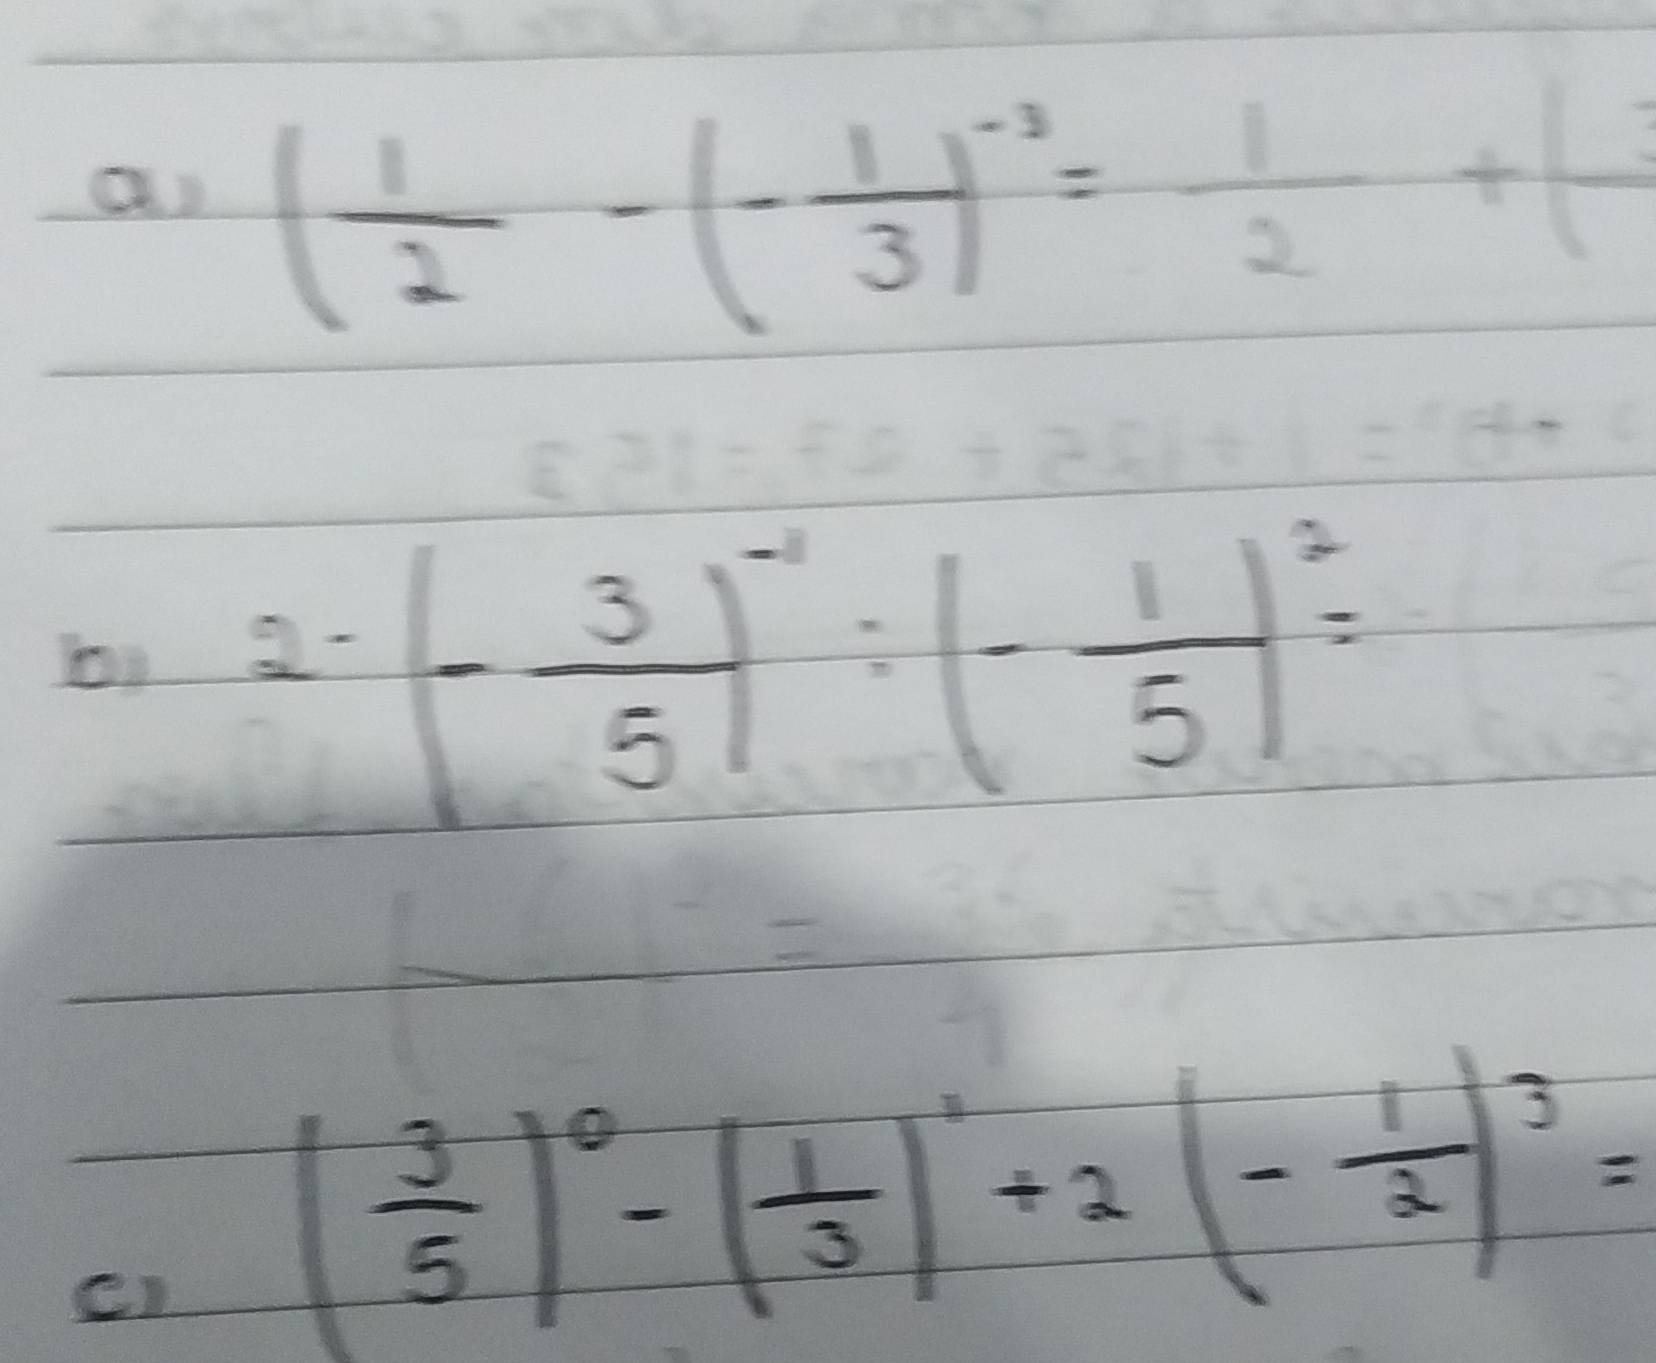 a) (1/2 - (-1/3)^-3 = 1/2 + (
b) 2 - (-3/5)^-1 : (-1/5)^2 =
c) (3/5)^0 - (1/3)^1 + 2 (-1/2)^3 =